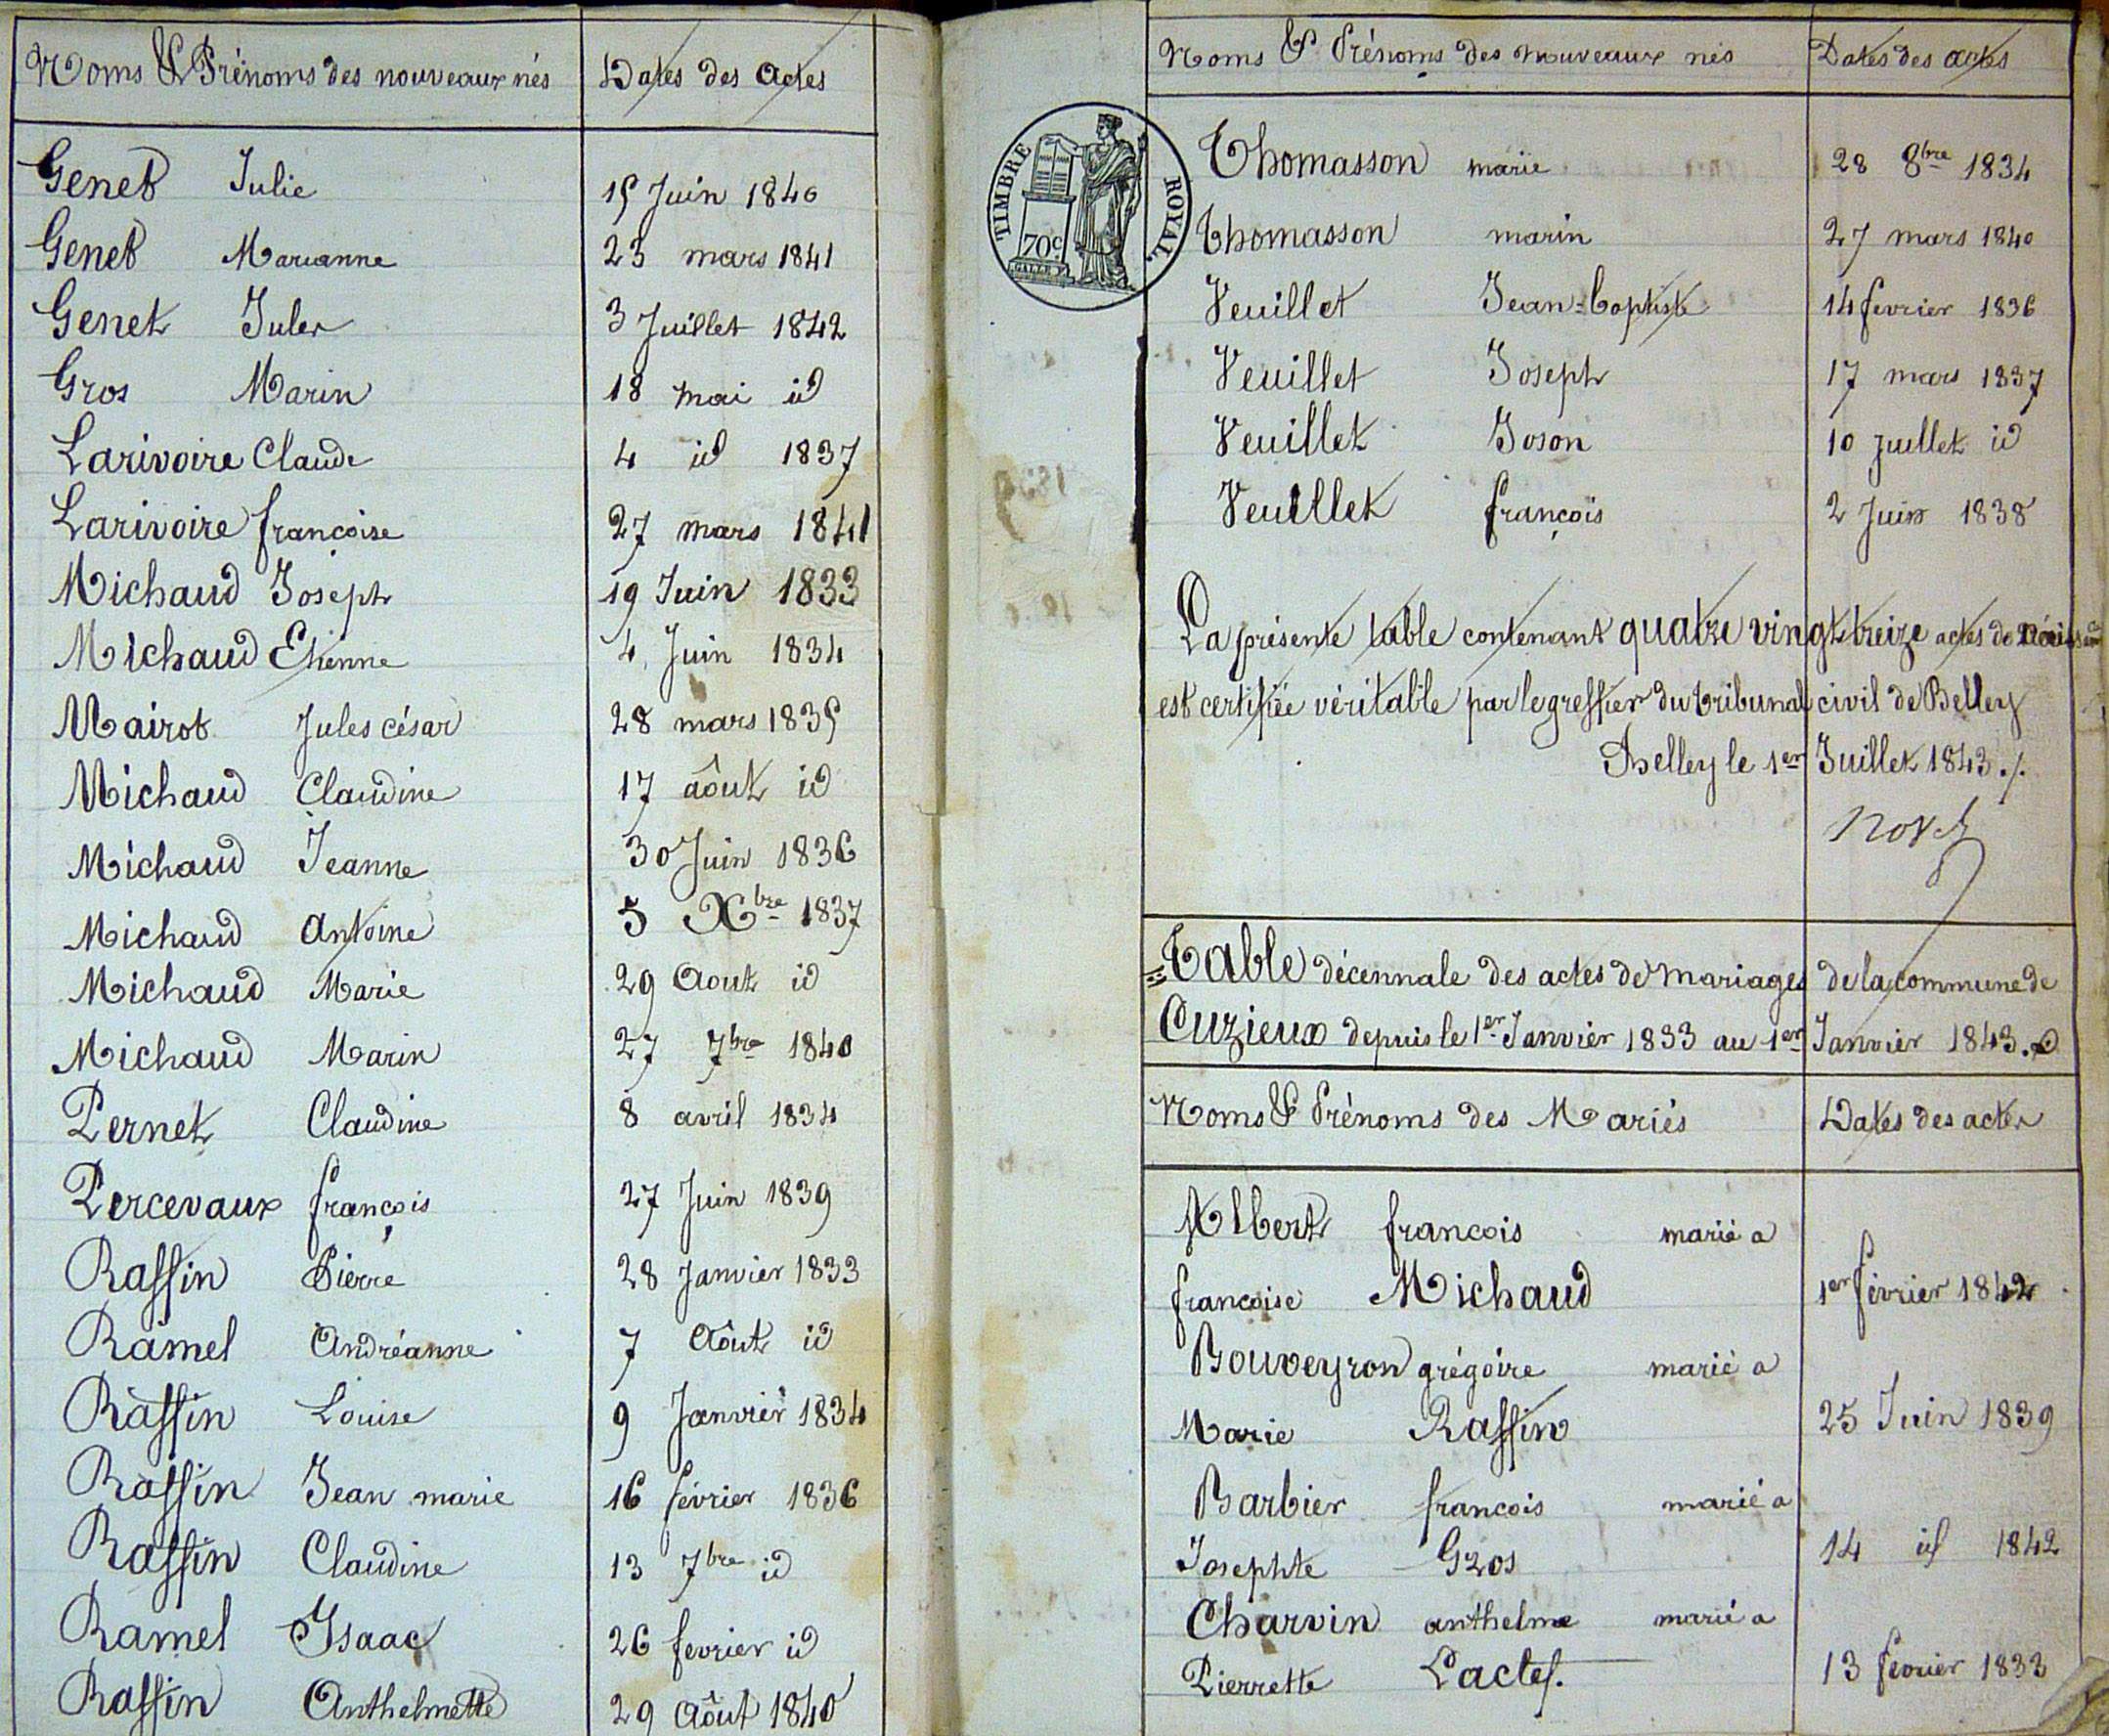 Noms & Prénoms des nouveaux nés Dates des Actes
Genet Julie 15 Juin 1840
Genet Marianne 23 mars 1841
Genet Jules 3 Juillet 1842
Gros Marin 18 mai id
Larivoire Claude 4 id 1837
Larivoire françoise 27 mars 1841
Michaud Joseph 19 Juin 1833
Michaud Etienne 4 Juin 1834
Mairot Jules césar 28 mars 1835
Michaud Claudine 17 aôut id
Michaud Jeanne 30 Juin 1836
Michaud Antoine 5 Xbre 1837
Michaud Marie 29 Aout id
Michaud Marin 27 7bre 1840
Pernet Claudine 8 avril 1834
Percevaux françois 27 Juin 1839
Raffin Pierre 28 Janvier 1833
Ramel Andréanne 7 Aôut id
Raffin Louise 9 Janvier 1834
Raffin Jean marie 16 février 1836
Raffin Claudine 13 7bre id
Ramel Isaac 26 fevrier id
Raffin Anthelmette 29 Aôut 1840
Noms & Prénoms des nouveaux nés Dates des actes
TIMBRE ROYAL
70c
Thomasson marie 28 8bre 1834
Thomasson marin 27 mars 1840
Veuillet Jean-baptiste 14 fevrier 1836
Veuillet Joseph 17 mars 1837
Veuillet Joson 10 juillet id
Veuillet françois 2 Juin 1838
La présente table contenant quatre vingt treize actes de
est certifiée véritable par le greffier du tribunal civil de Belley
Belley le 1er Juillet 1843 ./.
Table décennale des actes de mariages de la commune de
Cuzieux depuis le 1er Janvier 1833 au 1er Janvier 1843.
Noms & Prénoms des Mariés Dates des actes
Albert françois marié a
francoise Michaud 1er février 1842
Bouveyron grégoire marié a
Marie Raffin 25 Juin 1839
Barbier francois marié a
Josephte Gros 14 id 1842
Charvin anthelme marié a
Pierrette Lactef. 13 fevrier 1833